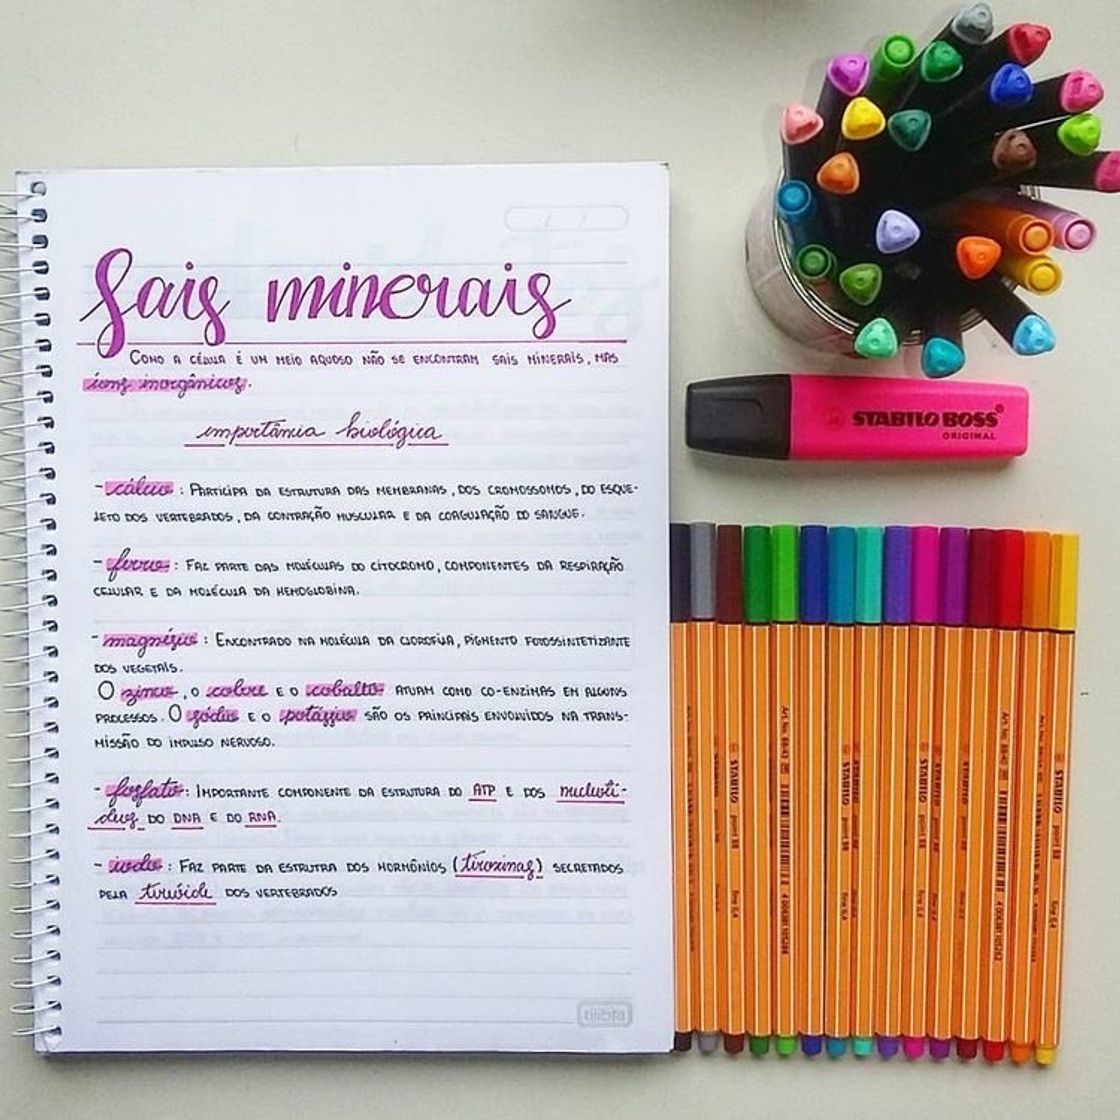 Sais minerais
COMO A CÉLULA É UM MEIO AQUOSO NÃO SE ENCONTRAM SAIS MINERAIS, MAS
íons inorgânicos.
importância biológica
- cálcio: PARTICIPA DA ESTRUTURA DAS MEMBRANAS, DOS CROMOSSOMOS, DO ESQUE-
LETO DOS VERTEBRADOS, DA CONTRAÇÃO MUSCULAR E DA COAGULAÇÃO DO SANGUE.
- ferro: FAZ PARTE DAS MOLÉCULAS DO CITOCROMO, COMPONENTES DA RESPIRAÇÃO
CELULAR E DA MOLÉCULA DA HEMOGLOBINA.
- magnésio: ENCONTRADO NA MOLÉCULA DA CLOROFILA, PIGMENTO FOTOSSINTETIZANTE
DOS VEGETAIS.
O zinco, O cobre E O cobalto ATUAM COMO CO-ENZIMAS EM ALGUNS
PROCESSOS. O sódio E O potássio SÃO OS PRINCIPAIS ENVOLVIDOS NA TRANS-
MISSÃO DO IMPULSO NERVOSO.
- fosfato: IMPORTANTE COMPONENTE DA ESTRUTURA DO ATP E DOS nucleotí-
deos DO DNA E DO RNA.
- iodo: FAZ PARTE DA ESTRUTRA DOS HORMÔNIOS (tiroxinas) SECRETADOS
PELA tireóide DOS VERTEBRADOS
tilibra
STABILO BOSS®
ORIGINAL
STABILO point 88 fine 0,4
STABILO point 88 fine 0,4
STABILO point 88
STABILO point 88 fine 0,4